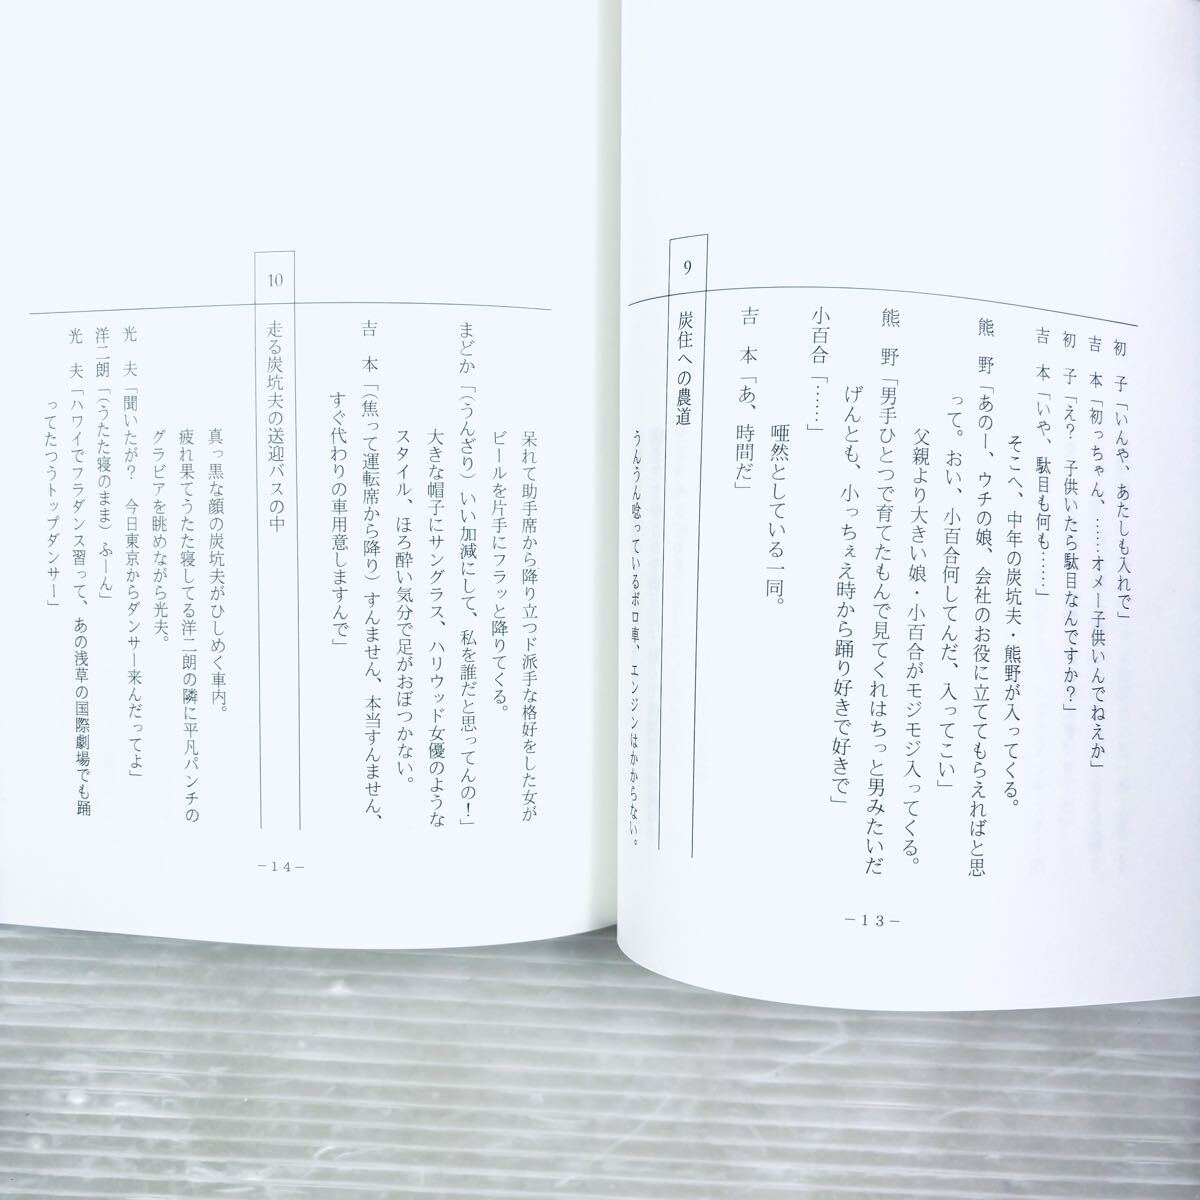 初　子「いんや、あたしも入れで」
吉　本「初っちゃん、……オメー子供いんでねえか」
初　子「え？　子供いたら駄目なんですか？」
吉　本「いや、駄目も何も……」
そこへ、中年の炭坑夫・熊野が入ってくる。
熊　野「あのー、ウチの娘、会社のお役に立ててもらえればと思
って。おい、小百合何してんだ、入ってこい」
父親より大きい娘・小百合がモジモジ入ってくる。
熊　野「男手ひとつで育てたもんで見てくれはちっと男みたいだ
げんとも、小っちぇえ時から踊り好きで好きで」
小百合「……」
唖然としている一同。
吉　本「あ、時間だ」
9　炭住への農道
うんうん唸っているボロ車、エンジンはかからない。
－13－
呆れて助手席から降り立つド派手な格好をした女が
ビールを片手にフラッと降りてくる。
まどか「（うんざり）いい加減にして、私を誰だと思ってんの！」
大きな帽子にサングラス、ハリウッド女優のような
スタイル、ほろ酔い気分で足がおぼつかない。
吉　本「（焦って運転席から降り）すんません、本当すんません、
すぐ代わりの車用意しますんで」
10　走る炭坑夫の送迎バスの中
真っ黒な顔の炭坑夫がひしめく車内。
疲れ果てうたた寝してる洋二朗の隣に平凡パンチの
グラビアを眺めながら光夫。
光　夫「聞いたが？　今日東京からダンサー来んだってよ」
洋二朗「（うたた寝のまま）ふーん」
光　夫「ハワイでフラダンス習って、あの浅草の国際劇場でも踊
ってたつうトップダンサー」
－14－